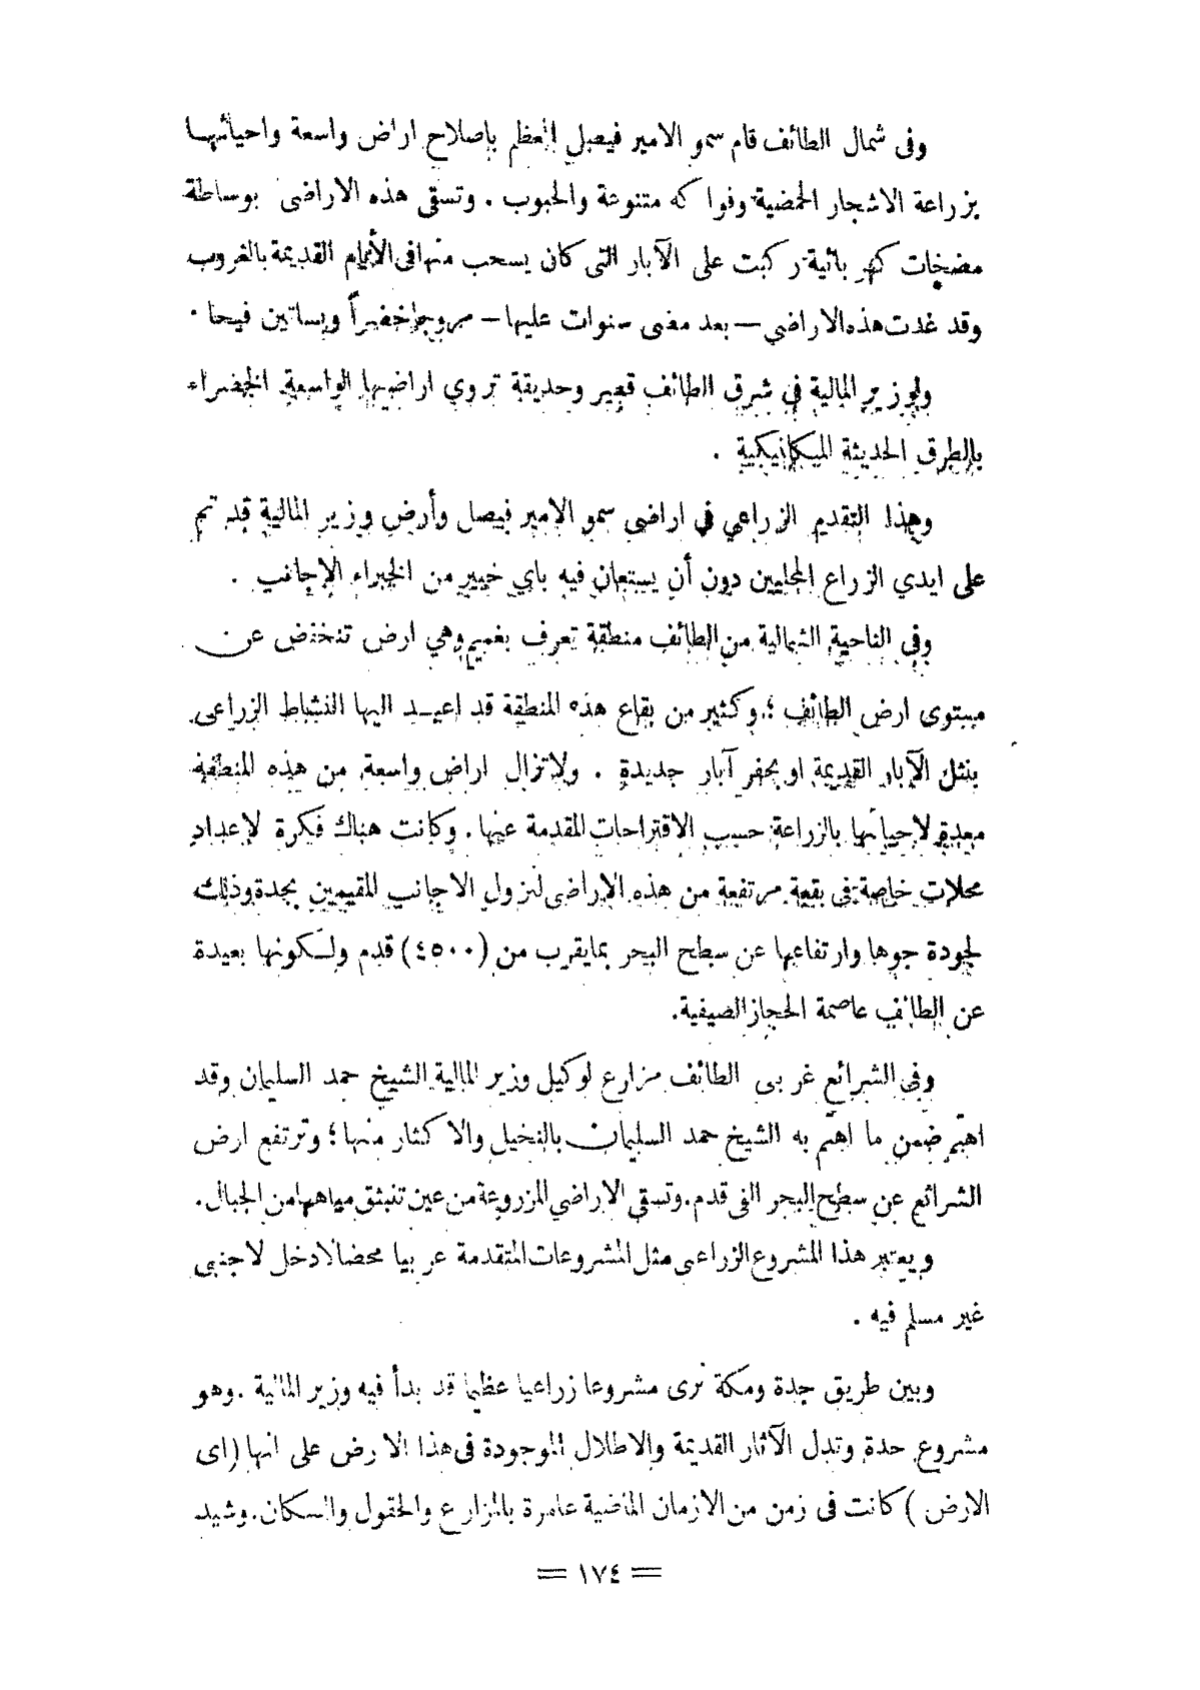 وفى شمال الطائف قام سمو الامير فيصل المعظم بإصلاح اراض واسعة واحيائها
بزراعة الاشجار الحمضية وفواكه متنوعة والحبوب . وتسقى هذه الاراضى بوساطة
مضخات كهربائية ركبت على الآبار التى كان يسحب منها فى الأيام القديمة بالغروب
وقد غدت هذه الاراضي — بعد مضى سنوات عليها — مروجا خضراً وبساتين فيحا .
ولوزير المالية في شرق الطائف قصر وحديقة تروي اراضيها الواسعة الخضراء
بالطرق الحديثة الميكانيكية .
وهذا التقدم الزراعي في اراضى سمو الامير فيصل وأرض وزير المالية قد تم
على ايدي الزراع المحليين دون أن يستعان فيه باي خبير من الخبراء الاجانب .
وفي الناحية الشمالية من الطائف منطقة تعرف بغميم وهي ارض تنخفض عن
مستوى ارض الطائف ؛ وكثير من بقاع هذه المنطقة قد اعيد اليها النشاط الزراعى
بنثل الآبار القديمة او بحفر آبار جديدة . ولا تزال اراض واسعة من هذه المنطقة
معدة لاحيائها بالزراعة حسب الاقتراحات المقدمة عنها . وكانت هناك فكرة لاعداد
محلات خاصة فى بقعة مرتفعة من هذه الاراضى لنزول الاجانب المقيمين بجدة وذلك
لجودة جوها وارتفاعها عن سطح البحر بما يقرب من (٤٥٠٠) قدم ولكونها بعيدة
عن الطائف عاصمة الحجاز الصيفية.
وفى الشرائع غربى الطائف مزارع لوكيل وزير المالية الشيخ حمد السليمان وقد
اهتم ضمن ما اهتم به الشيخ حمد السليمان بالنخيل والاكثار منها ؛ وترتفع ارض
الشرائع عن سطح البحر الفى قدم . وتسقى الاراضي المزروعة من عين تنبثق مياهها من الجبال .
ويعتبر هذا المشروع الزراعى مثل المشروعات المتقدمة عربيا محضا لا دخل لاجنبى
غير مسلم فيه .
وبين طريق جدة ومكة نرى مشروعا زراعيا عظيما قد بدأ فيه وزير المالية . وهو
مشروع حدة وتدل الآثار القديمة والاطلال الموجودة فى هذا الارض على انها (اى
الارض ) كانت فى زمن من الازمان الماضية عامرة بالمزارع والحقول والسكان . وشيد
= ١٧٤ =